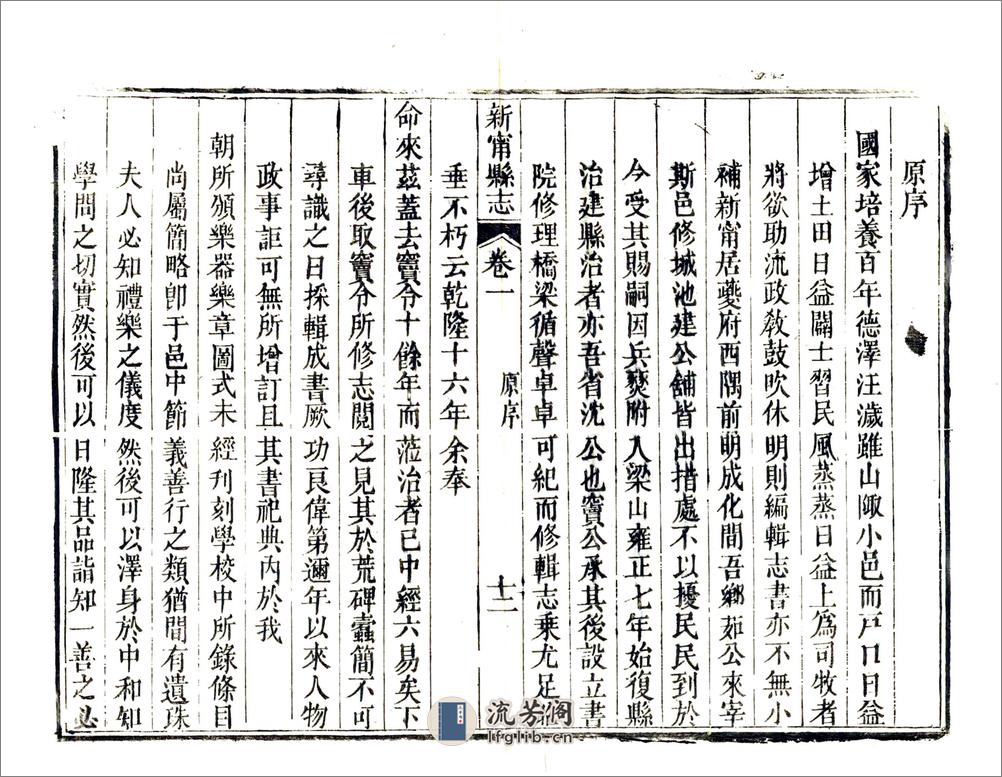 原序
國家培養百年德澤汪濊雖山陬小邑而戸口日益
增土田日益闢士習民風蒸蒸日益上爲司牧者
將欲助流政敎鼓吹休明則編輯志書亦不無小
補新甯居夔府西隅前明成化間吾鄉茹公來宰
斯邑修城池建公舖皆出措處不以擾民民到於
今受其賜嗣因兵燹附入梁山雍正七年始復縣
治建縣治者亦吾省沈公也竇公承其後設立書
院修理橋梁循聲卓卓可紀而修輯志乘尤足
新甯縣志 卷一 原序 十二
垂不朽云乾隆十六年余奉
命來茲蓋去竇令十餘年而蒞治者已中經六易矣下
車後取竇令所修志閲之見其於荒碑蠹簡不可
尋識之日採輯成書厥功良偉第邇年以來人物
政事詎可無所增訂且其書祀典內於我
朝所頒樂器樂章圖式未經刋刻學校中所錄條目
尚屬簡略卽于邑中節義善行之類猶間有遺珠
夫人必知禮樂之儀度然後可以澤身於中和知
學問之切實然後可以日隆其品詣知一善之必
流芳閣
lfglib.cn